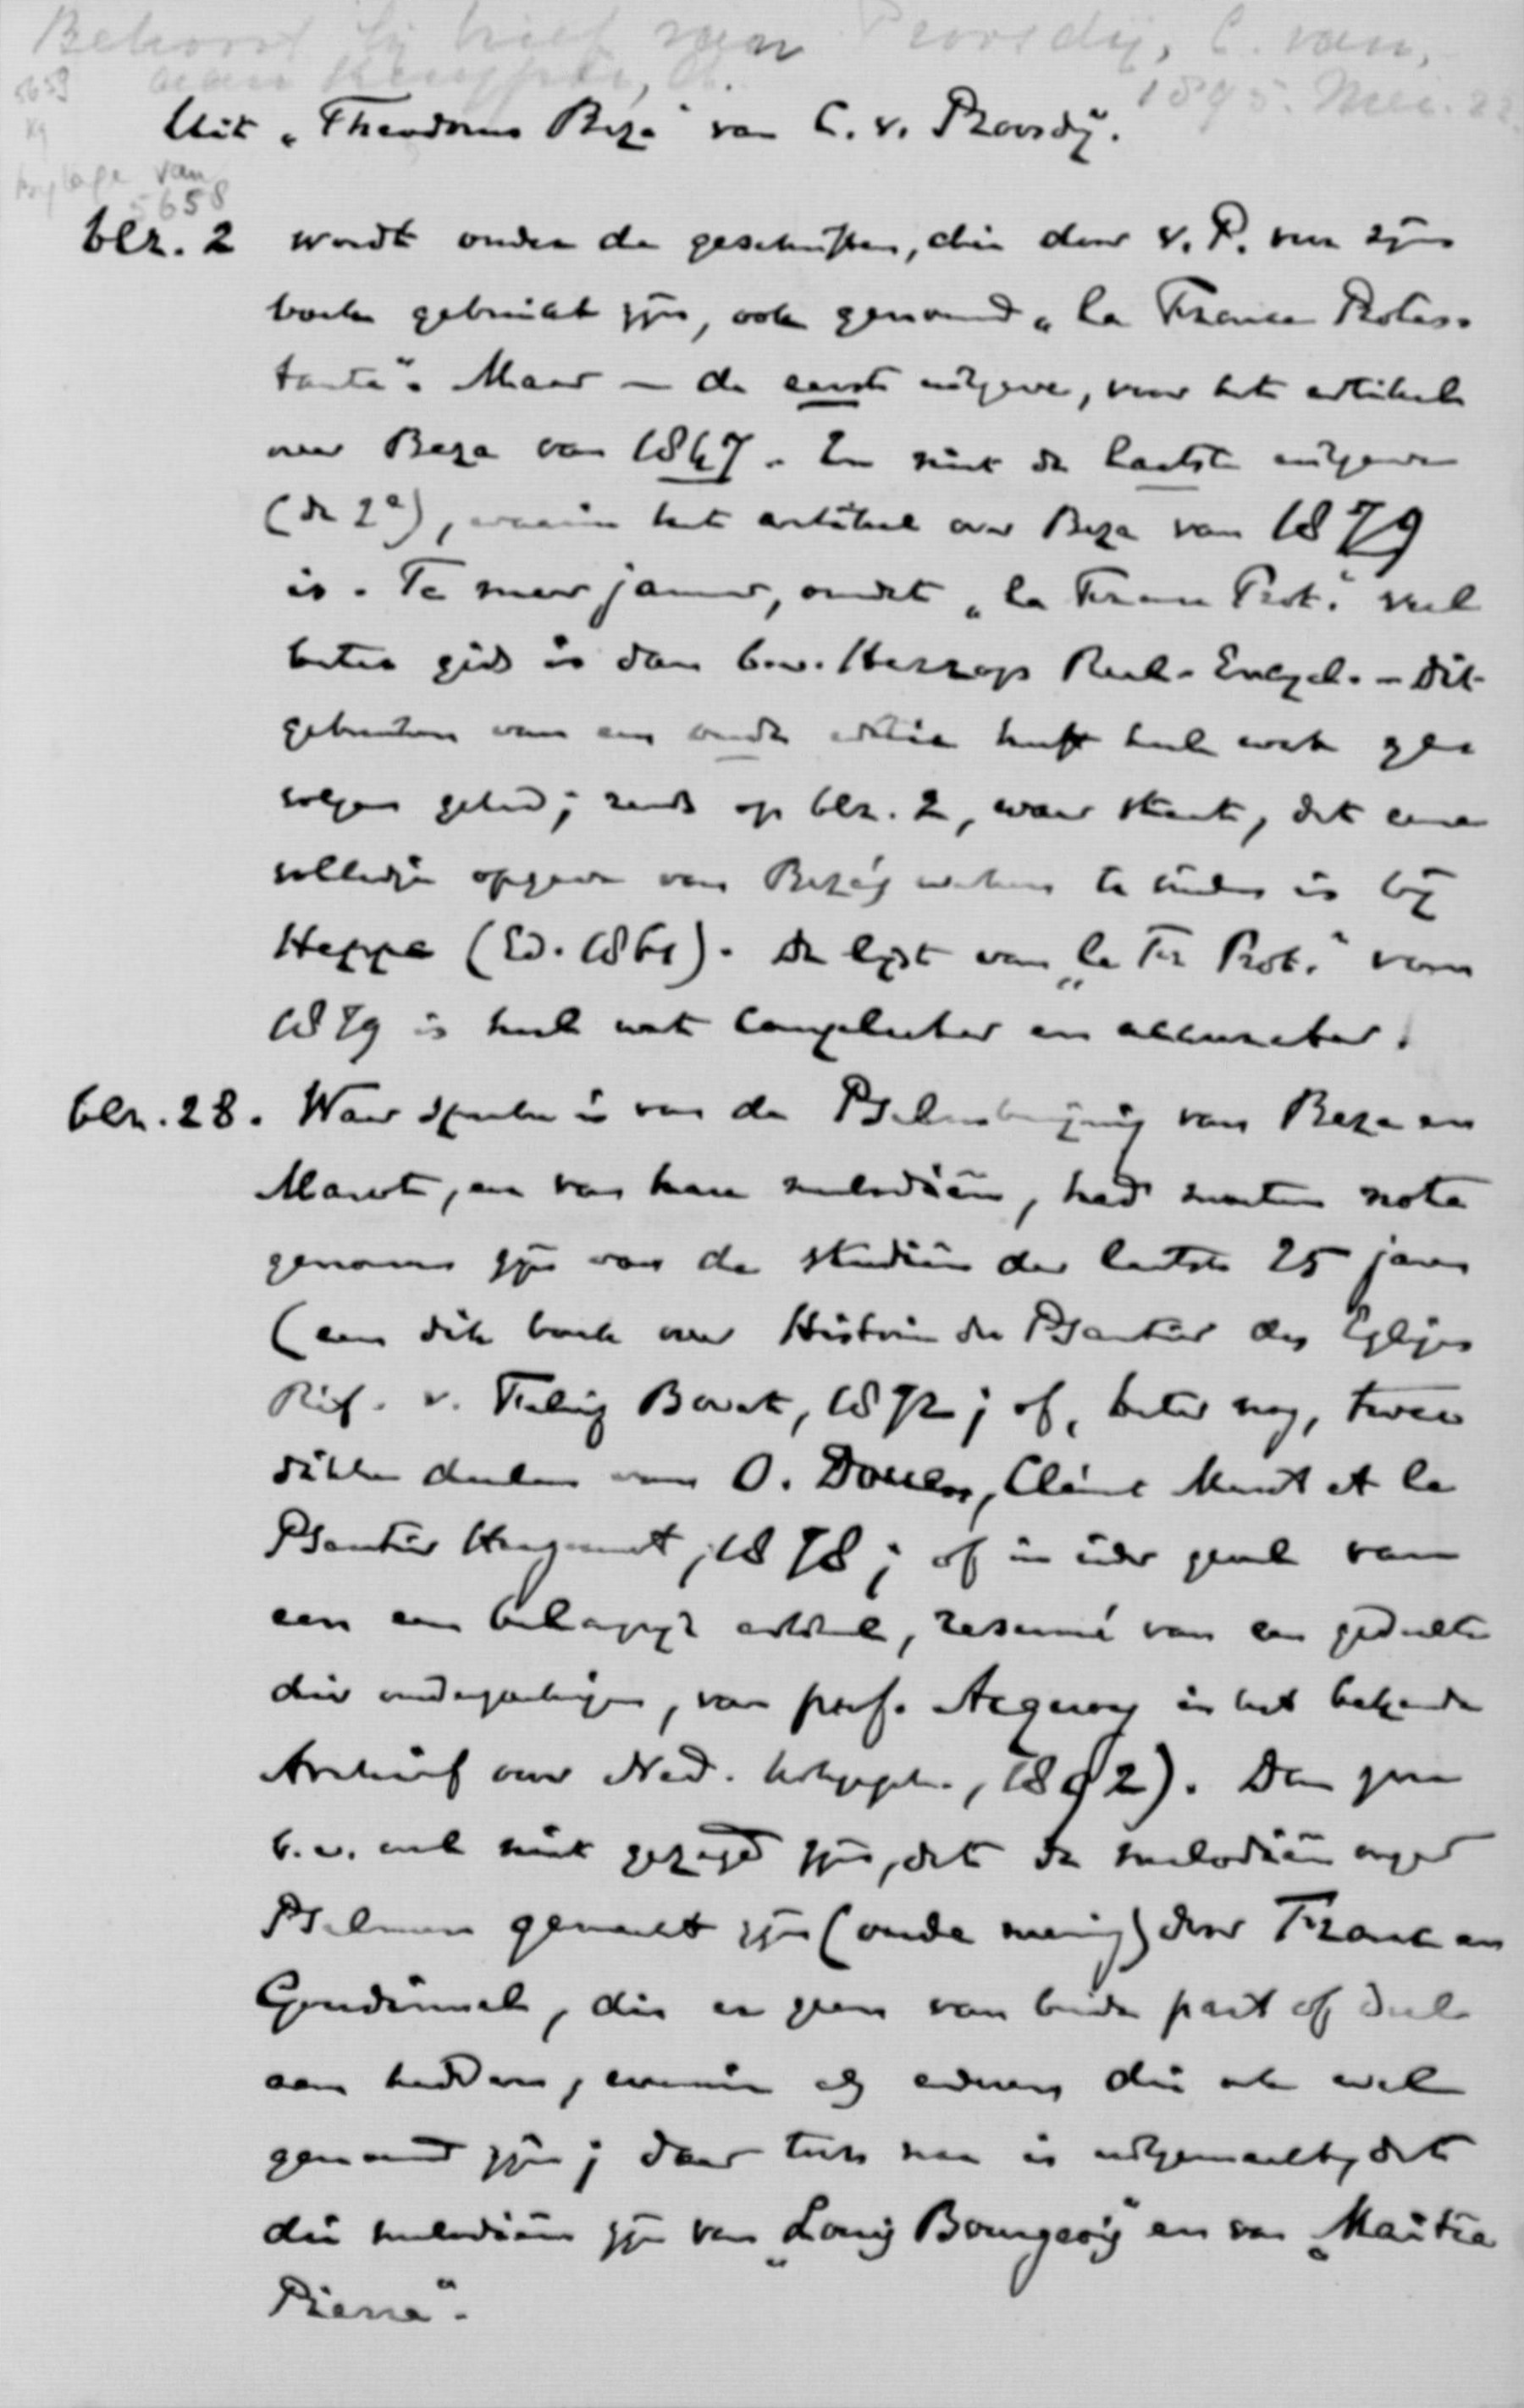 Behoort bij brief van Proosdij, C. van,
aan Kuyper, A.
1895. Mei. 22.
5659
Kg
bijlage van
5658
Uit „Theodorus Beza" van C. v. Proosdij.
blz. 2 wordt onder de geschriften, die door v. P. voor zijn
boek gebruikt zijn, ook genoemd „la France Protes-
tante". Maar – de eerste uitgave, voor het artikel
over Beza van 1847. En niet de laatste uitgave
(de 2e), waarin het artikel over Beza van 1879
is. Te meer jammer, omdat „la France Prot." veel
beter gids is dan b.v. Herzogs Real-Encycl. – Dit
gebruiken van een oude editie heeft heel wat ge-
volgen gehad; reeds op blz. 2, waar staat, dat eene
volledige opgave van Beza's werken te vinden is bij
Heppe (Ed. 1861). De lijst van „la Fr. Prot." van
1879 is heel wat completer en accurater.
blz. 28. Waar sprake is van de Psalmberijming van Beza en
Marot, en van hare melodieën, had moeten nota
genomen zijn van de studiën der laatste 25 jaren
(een dik boek over Histoire du Psautier des Eglises
Réf. v. Felix Bovet, 1872; of, beter nog, twee
dikke deelen van O. Douen, Clément Marot et le
Psautier Huguenot, 1878; of in ieder geval van
een een belangrijk artikel, resumé van een gedeelte
dier onderzoekingen, van prof. Acquoy in het bekende
Archief voor Ned. kerkgesch., 1892). Dan zou
b.v. wel niet gezegd zijn, dat de melodieën onzer
Psalmen gemaakt zijn (oude meening) door Franc en
Goudimel, die er geen van beide part of deel
aan hadden, evenmin als anderen die ook wel
genoemd zijn; daar thans is uitgemaakt, dat
die melodieën zijn van „Louis Bourgeois" en van „Maître
Pierre".